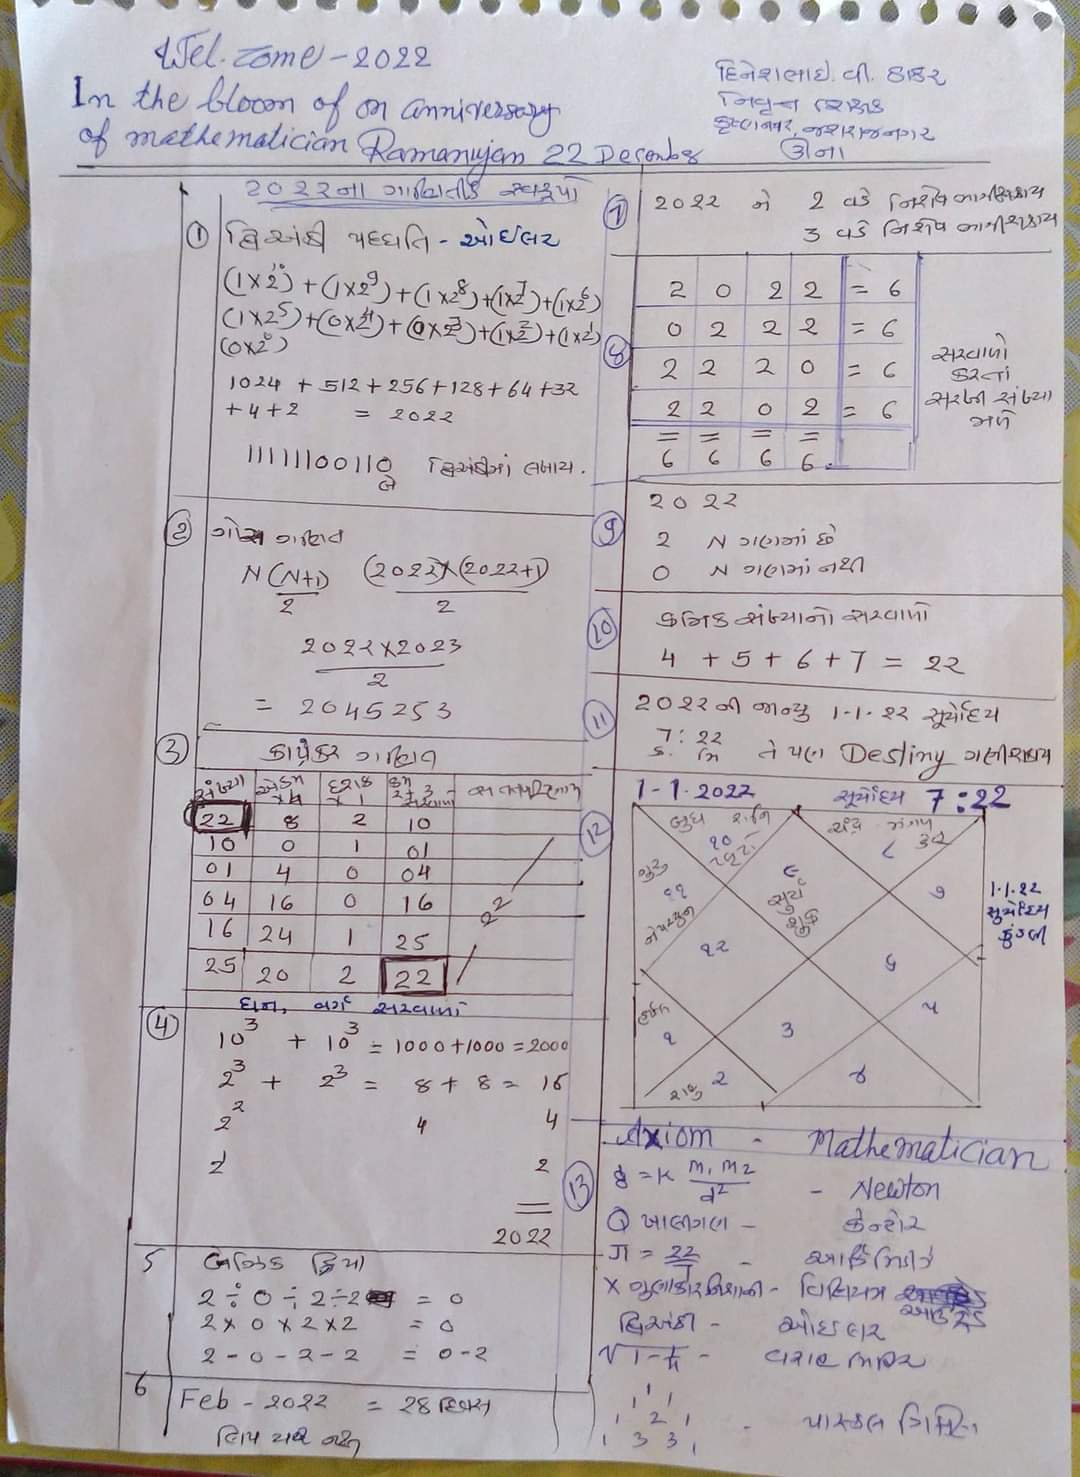 Wel-come-2022
In the bloom of on anniversary
of mathematician Ramanujam 22 December
દિનેશભાઇ. વી. ઠાકર
નિવૃત્ત શિક્ષક
કૃષ્ણનગર, જશરાજનગર
ઊના
૨૦૨૨ના ગાણિતીક સ્વરૂપો
① દ્વિઅંકી પધ્ધતિ - ઓઇલર
(1×2¹⁰)+(1×2⁹)+(1×2⁸)+(1×2⁷)+(1×2⁶)
(1×2⁵)+(0×2⁴)+(0×2³)+(1×2²)+(1×2¹)
(0×2⁰)
1024 + 512 + 256 + 128 + 64 + 32
+ 4 + 2 = 2022
11111100110 બે દ્વિઅંકીમાં લખાય.
② ગોસ ગણિત
N(N+1)/2 (2022)×(2022+1)/2
2022×2023/2
= 2045253
③ કાપ્રેકર ગણિત
સંખ્યા એકમ ×4 દશક ×1 ક્રમ 2+3 સરવાળો
22 8 2 10
10 0 1 01
01 4 0 04
04 16 0 16
16 24 1 25
25 20 2 22
22
④ ઘન, વર્ગ સરવાળો
10³ + 10³ = 1000+1000 = 2000
2³ + 2³ = 8 + 8 = 16
2² 4 4
2¹ 2
2022
5 બૈજિક ક્રિયા
2 ÷ 0 ÷ 2 ÷ 2 = 0
2 × 0 × 2 × 2 = 0
2 - 0 - 2 - 2 = 0-2
6 Feb - 2022 = 28 દિવસ
લિપ યર નથી
⑦ 2022 ને 2 વડે નિશેષ ભાગી શકાય
3 વડે નિશેષ ભાગી શકાય
⑧
2 0 2 2 = 6
0 2 2 2 = 6
2 2 2 0 = 6
2 2 0 2 = 6
= = = =
6 6 6 6
સરવાળો
કરતાં
સરખી સંખ્યા
મળે
⑨ 2022
2 N ગણમાં છે
0 N ગણમાં નથી
⑩ ક્રમિક સંખ્યાનો સરવાળો
4 + 5 + 6 + 7 = 22
⑪ 2022ની જાન્યુ 1-1-22 સૂર્યોદય
7:22
ક. મિ તે પણ Destiny ગણી શકાય
⑫ 1-1-2022 સૂર્યોદય 7:22
બુધ શનિ
૧૦
ચંદ્ર મંગળ
૮
ગુરુ
૧૧
નેપચ્યુન
૯
સૂર્ય
શુક્ર
૭
૧૨
૬
૫
૧
૩
૨
રાહુ
૪
1.1.22
સૂર્યોદય
કુંડળી
Axiom - Mathematician
⑬ g = K m₁m₂/d² - Newton
Q ખાલીગણ - કેન્ટોર
π = 22/7 - આર્કિમિડીઝ
× ગુણાકાર નિશાની - વિલિયમ
ઓટ્રેડ
દ્વિઅંકી - ઓઇલર
√
1
1 1
1 2 1
1 3 3 1
- પાસ્કલ